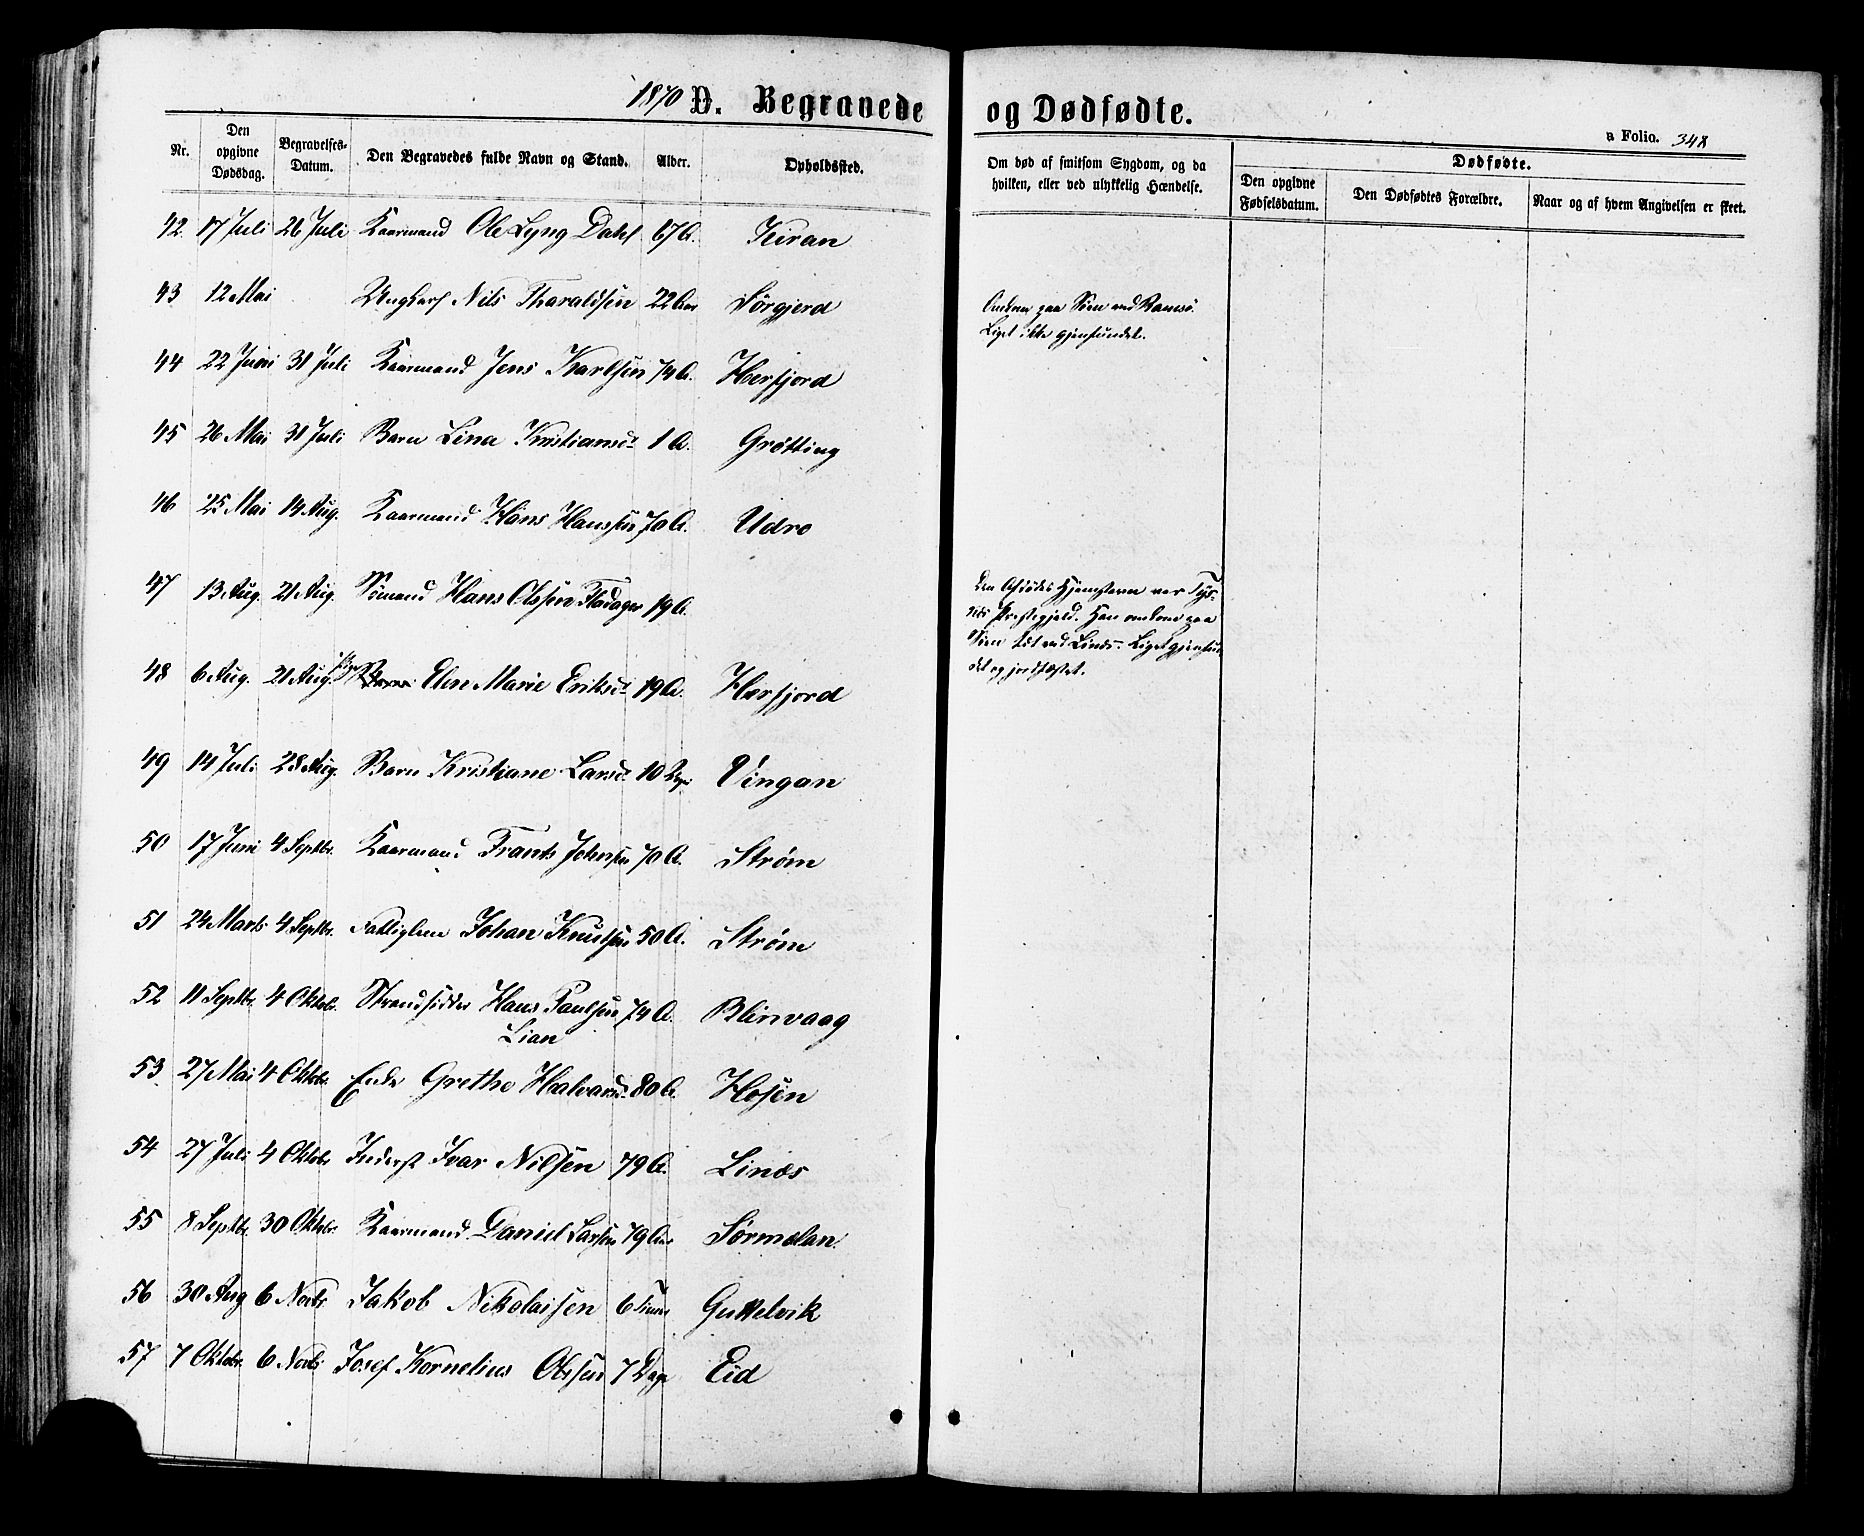 1870 D. Begravede og Dødfødte.
a Folio. 348
Nr. Den opgivne Dødsdag. Begravelses-Datum. Den Begravedes fulde Navn og Stand. Alder. Opholdssted. Om død af smitsom Sygdom, og da hvilken, eller ved ulykkelig Hændelse. Dødfødte. Den opgivne Fødselsdatum. Den Dødfødtes Forældre. Naar og af hvem Angivelsen er skeet.
42. 17 Juli 26 Juli Kaarmand Ole Lyng Dahl 67 A. Kiran
43 12 Mai Ungkarl Nils Tharaldsen 22 Aar Sörgjerd Omkom paa Söen ved Ramsö.
Liget ikke gjenfundet.
44 22 Juni 31 Juli Kaarmand Jens Karlsen 74 A. Herfjord
45 26 Mai 31 Juli Barn Lina Kristiansd. 1 A. Grötting
46 25 Mai 14 Aug. Kaarmand Hans Hanssen 70 A. Udro
47 13 Aug. 21 Aug. Sömand Hans Olssen Fladager 19 A. Den Afdödes Hjemstavn var Tys-
nes Prestegjeld. Han omkom paa
Söen tæt ved Linæs. Liget gjenfun-
det og jordfæstet.
48 6 Aug. 21 Aug. Pige Elen Marie Eriksd. 19 A. Herfjord
49 14 Juli 28 Aug. Barn Kristiane Larsd. 10 Dage Vingan
50 17 Juni 4 Septbr. Kaarmand Frants Johnsen 70 A. Strøm
51 24 Marts 4 Septbr. Fattiglem Johan Knutsen 50 A. Strøm
52 11 Septbr. 4 Oktob. Strandsidder Hans Paulsen 74 A. Blinvaag
Lian
53 27 Mai 4 Oktobr. Enke Grethe Halvarsd. 80 A. Hosen
54 27 Juli 4 Oktobr. Inderst Ivar Nilsen 79 A. Linæs
55 8 Septbr. 30 Oktbr. Kaarmand Daniel Larsen 79 Aar Sørmelan
56 30 Aug 6 Novbr Jakob Nikolaisen 6 Timer Guttelvik
57 7 Oktobr. 6 Novbr Josef Kornelius Olssen 7 Dage Eid